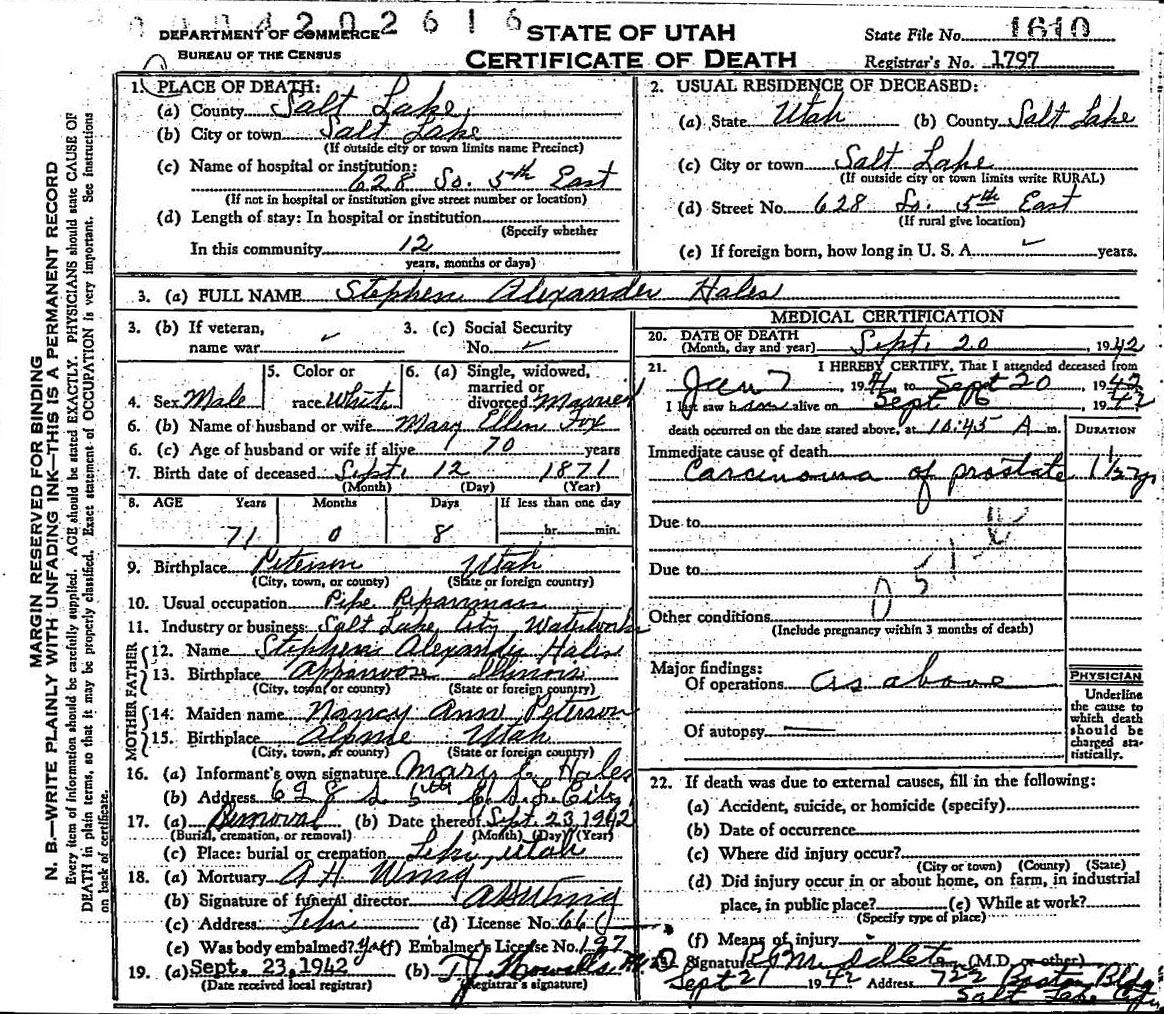 0 0 4 2 0 2 6 1 6
DEPARTMENT OF COMMERCE
BUREAU OF THE CENSUS
STATE OF UTAH
CERTIFICATE OF DEATH
State File No. 1610
Registrar's No. 1797
MARGIN RESERVED FOR BINDING
N. B.—WRITE PLAINLY WITH UNFADING INK—THIS IS A PERMANENT RECORD
Every item of information should be carefully supplied. AGE should be stated EXACTLY. PHYSICIANS should state CAUSE OF
DEATH in plain terms, so that it may be properly classified. Exact statement of OCCUPATION is very important. See instructions
on back of certificate.
1. PLACE OF DEATH:
(a) County Salt Lake
(b) City or town Salt Lake
(If outside city or town limits name Precinct)
(c) Name of hospital or institution:
628 So. 5th East
(If not in hospital or institution give street number or location)
(d) Length of stay: In hospital or institution
(Specify whether
In this community 12
years, months or days)
2. USUAL RESIDENCE OF DECEASED:
(a) State Utah (b) County Salt Lake
(c) City or town Salt Lake
(If outside city or town limits write RURAL)
(d) Street No. 628 So. 5th East
(If rural give location)
(e) If foreign born, how long in U. S. A. years.
3. (a) FULL NAME Stephen Alexander Hales
3. (b) If veteran, 3. (c) Social Security
name war No.
4. Sex Male 5. Color or race White 6. (a) Single, widowed, married or divorced Married
6. (b) Name of husband or wife Mary Ellen Fox
6. (c) Age of husband or wife if alive 70 years
7. Birth date of deceased Sept. 12 1871
(Month) (Day) (Year)
8. AGE Years Months Days If less than one day
71 0 8 hr. min.
9. Birthplace Peterson Utah
(City, town, or county) (State or foreign country)
10. Usual occupation Pipe Repairman
11. Industry or business: Salt Lake City Waterworks
FATHER
12. Name Stephen Alexander Hales
13. Birthplace Appanoose Illinois
(City, town, or county) (State or foreign country)
MOTHER
14. Maiden name Nancy Ann Peterson
15. Birthplace Alpine Utah
(City, town, or county) (State or foreign country)
16. (a) Informant's own signature Mary E. Hales
(b) Address 628 S 5th E. S. L. City
17. (a) Removal (b) Date thereof Sept. 23, 1942
(Burial, cremation, or removal) (Month) (Day) (Year)
(c) Place: burial or cremation Lehi, Utah
18. (a) Mortuary A H Wing
(b) Signature of funeral director A H Wing
(c) Address Lehi (d) License No. 66
(e) Was body embalmed? Yes (f) Embalmer's License No. 197
19. (a) Sept. 23, 1942 (b) T J Howells M.D.
(Date received local registrar) (Registrar's signature)
MEDICAL CERTIFICATION
20. DATE OF DEATH
(Month, day and year) Sept. 20, 1942
21. I HEREBY CERTIFY, That I attended deceased from
Jan 7 1941 to Sept 20 1942
I last saw him alive on Sept 16, 1942
death occurred on the date stated above, at 10:45 A m. DURATION
Immediate cause of death
Carcinoma of prostate 1 1/2 y
Due to
Due to
0 5 1
Other conditions
(Include pregnancy within 3 months of death)
Major findings:
Of operations as above
Of autopsy
PHYSICIAN
Underline
the cause to
which death
should be
charged sta-
tistically.
22. If death was due to external causes, fill in the following:
(a) Accident, suicide, or homicide (specify)
(b) Date of occurrence
(c) Where did injury occur?
(City or town) (County) (State)
(d) Did injury occur in or about home, on farm, in industrial
place, in public place? (e) While at work?
(Specify type of place)
(f) Means of injury
23. Signature Middleton (M.D. or other)
Sept 21 1942 Address 722 Boston Bldg
Salt Lake City